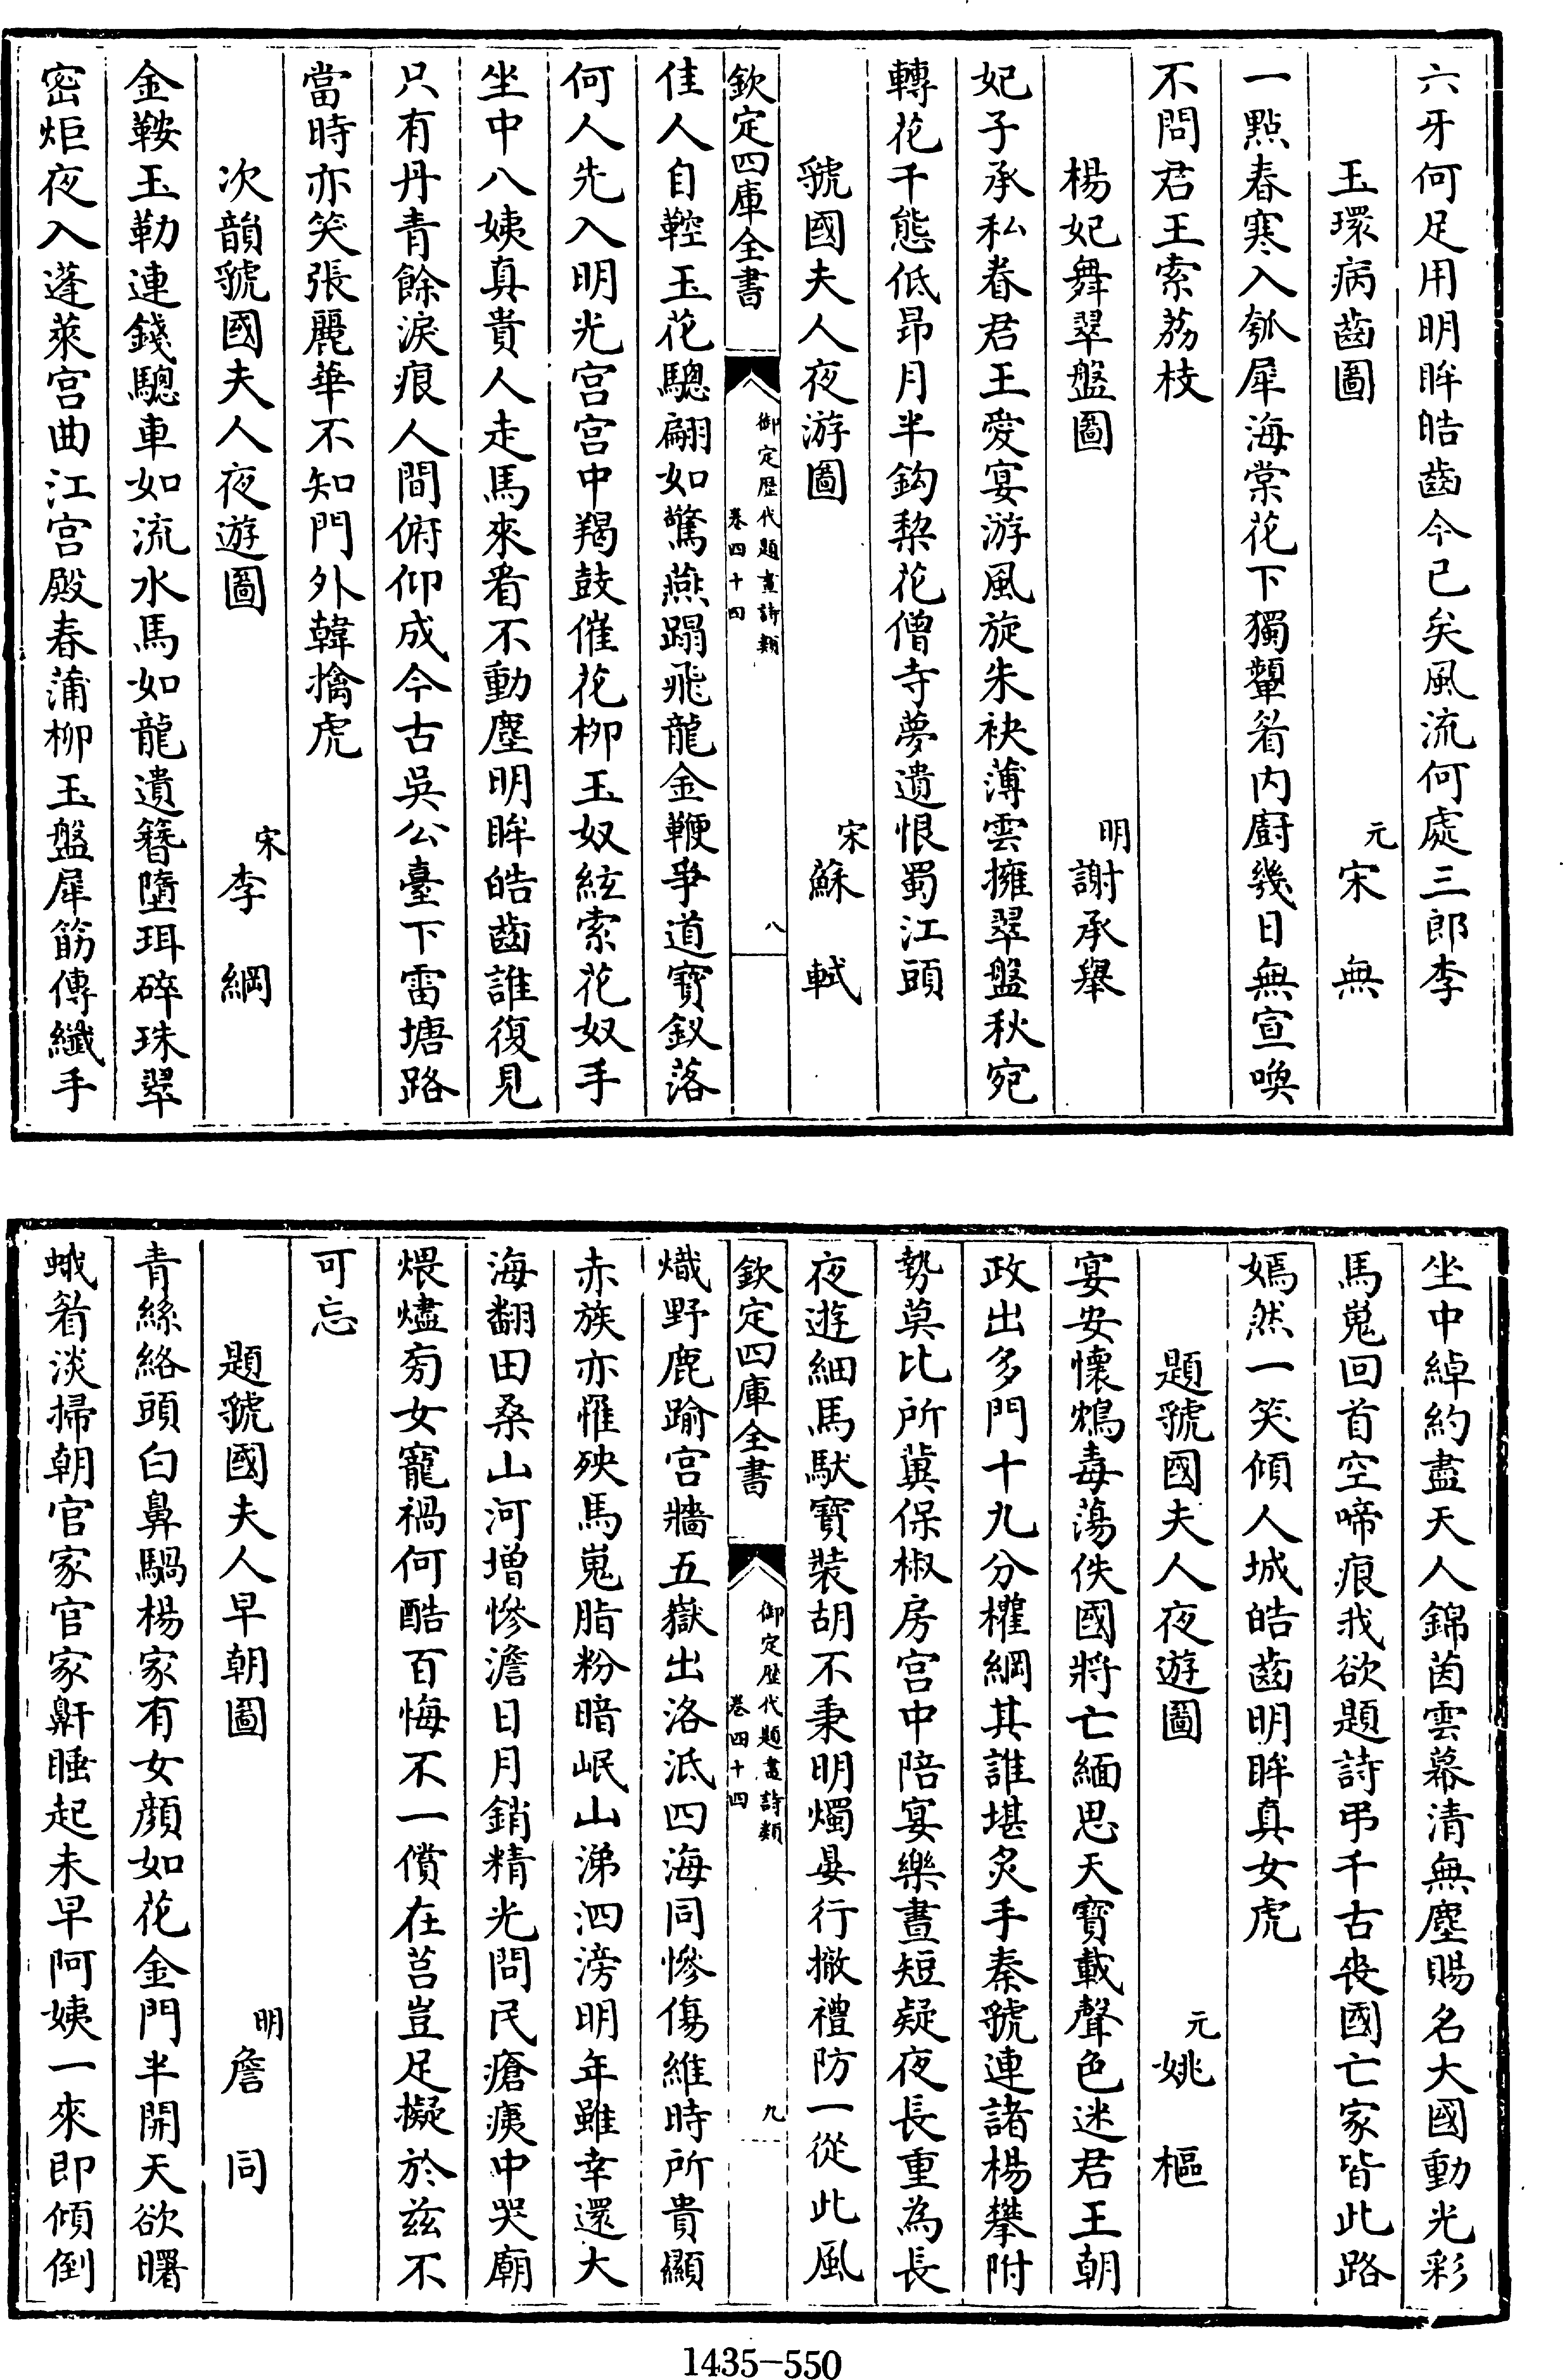 六牙何足用明眸皓齒今已矣風流何處三郎李
玉環病齒圖 元宋無
一點春寒入瓠犀海棠花下獨顰眉內廚幾日無宣喚
不問君王索荔枝
楊妃舞翠盤圖 明謝承舉
妃子承私眷君王愛宴游風旋朱袂薄雲擁翠盤秋宛
轉花千態低昂月半鈎棃花僧寺夢遺恨蜀江頭
虢國夫人夜游圖 宋蘇軾
欽定四庫全書 御定歴代題畫詩類 卷四十四 八
佳人自鞚玉花驄翩如驚燕蹋飛龍金鞭爭道寶釵落
何人先入明光宫宫中羯鼓催花柳玉奴絃索花奴手
坐中八姨真貴人走馬來看不動塵明眸皓齒誰復見
只有丹青餘淚痕人間俯仰成今古吳公臺下雷塘路
當時亦笑張麗華不知門外韓擒虎
次韻虢國夫人夜遊圖 宋李綱
金鞍玉勒連錢驄車如流水馬如龍遺簪墮珥碎珠翠
密炬夜入蓬萊宫曲江宫殿春蒲柳玉盤犀筯傳纖手
坐中綽約盡天人錦茵雲幕清無塵賜名大國動光彩
馬嵬回首空啼痕我欲題詩弔千古喪國亡家皆此路
嫣然一笑傾人城皓齒明眸真女虎
題虢國夫人夜遊圖 元姚樞
宴安懷鴆毒蕩佚國將亡緬思天寶載聲色迷君王朝
政出多門十九分權綱其誰堪炙手秦虢連諸楊攀附
勢莫比所冀保椒房宫中陪宴樂晝短疑夜長重為長
夜遊細馬馱寶裝胡不秉明燭晏行撤禮防一從此風
欽定四庫全書 御定歴代題畫詩類 卷四十四 九
熾野鹿踰宫牆五嶽出洛汦四海同慘傷維時所貴顯
赤族亦罹殃馬嵬脂粉暗岷山涕泗滂明年雖幸還大
海翻田桑山河增慘澹日月銷精光問民瘡痍中哭廟
煨燼旁女寵禍何酷百悔不一償在莒豈足擬於兹不
可忘
題虢國夫人早朝圖 明詹同
青絲絡頭白鼻騧楊家有女顔如花金門半開天欲曙
蛾眉淡掃朝官家官家鼾睡起未早阿姨一來即傾倒
1435-550